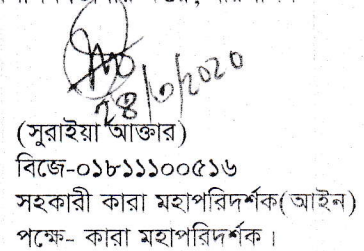 ২৪/৬/২০২০
(সুরাইয়া আক্তার)
বিজে-০১৮১১১০০৫১৬
সহকারী কারা মহাপরিদর্শক(আইন)
পক্ষে- কারা মহাপরিদর্শক।